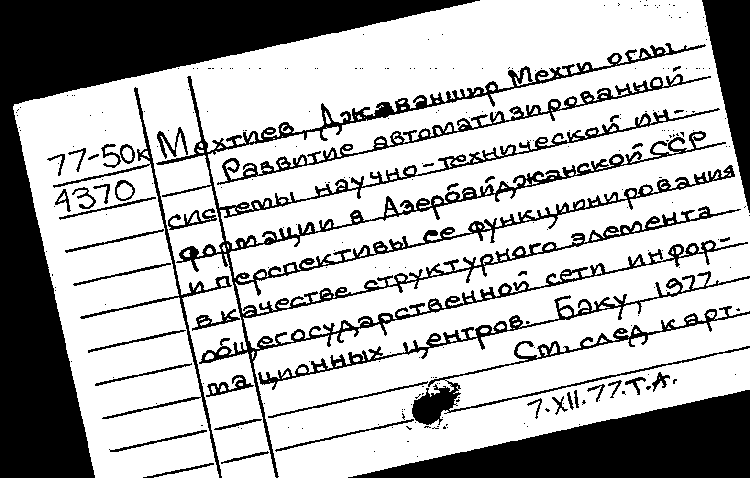 77-50к
4370
Мехтиев, Джаваншир Мехти оглы.
Развитие автоматизированной
системы научно-технической ин-
формации в Азербайджанской ССР
и перспективы ее функционирования
в качестве структурного элемента
общегосударственной сети инфор-
мационных центров. Баку, 1977.
См. след. карт.
7.XII.77.Т.А.